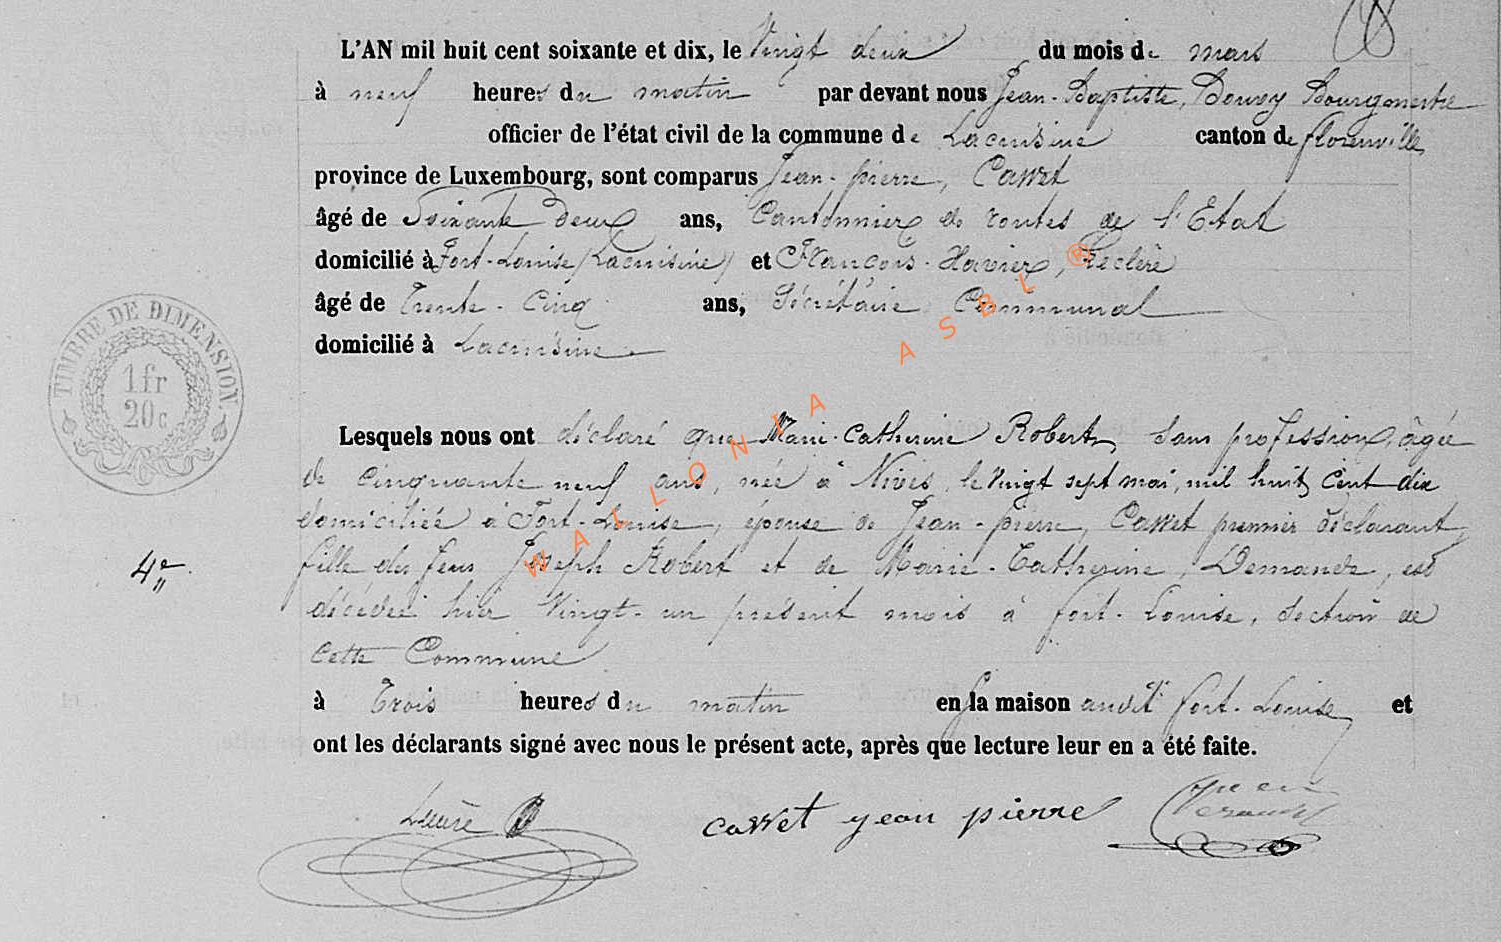 L'AN mil huit cent soixante et dix, le Vingt deux du mois de mars
à neuf heures du matin par devant nous Jean-Baptiste, Bourgmestre
officier de l'état civil de la commune de Lacuisine canton de florenville
province de Luxembourg, sont comparus Jean-pierre, Casset
âgé de Soixante Deux ans, Cantonnier de routes de l'Etat
domicilié à Fort-Louise (Lacuisine) et François-Xavier, Leclère
âgé de Trente-Cinq ans, Sécrétaire Communal
domicilié à Lacuisine
TIMBRE DE DIMENSION.
1 fr
20 c
Lesquels nous ont déclaré que Marie-Catherine Robert, Sans profession, âgée
de cinquante neuf ans, née à Nives, le Vingt sept mai, mil huit cent dix
domiciliée à Fort-Louise, épouse de Jean-pierre, Casset premier déclarant,
fille des feus Joseph Robert et de Marie-Catherine, Demande, est
4e
décédée hier Vingt-un présent mois à fort-Louise, Section de
cette Commune
à Trois heures du matin en la maison audit fort-Louise et
ont les déclarants signé avec nous le présent acte, après que lecture leur en a été faite.
casset jean pierre
WALLONIA ASBL ®